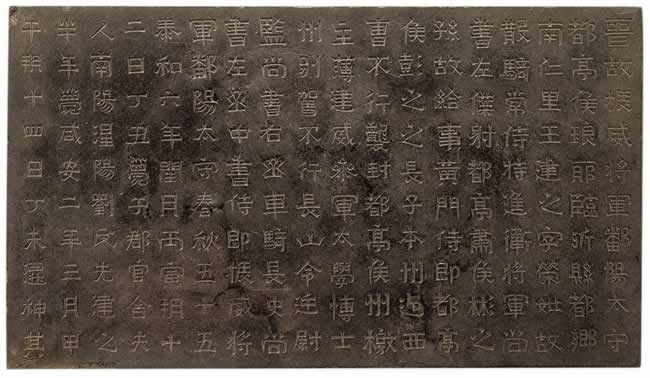 晉故振威將軍鄱陽太守
都亭侯琅耶臨沂縣都鄉
南仁里王建之字榮妣故
散騎常侍特進衛將軍尚
書左僕射都亭肅侯彬之
孫故給事黃門侍郎都亭
侯彭之之長子本州迎西
曹不行襲封都亭侯州檄
主簿建威參軍太學博士
州別駕不行長山令廷尉
監尚書右丞車騎長史尚
書左丞中書侍郎振威將
軍鄱陽太守春秋五十五
泰和六年閏月丙寅朔十
二日丁丑薨于郡官舍夫
人南陽涅陽劉氏先建之
半年薨咸安二年三月甲
午朔十四日丁未遷神其